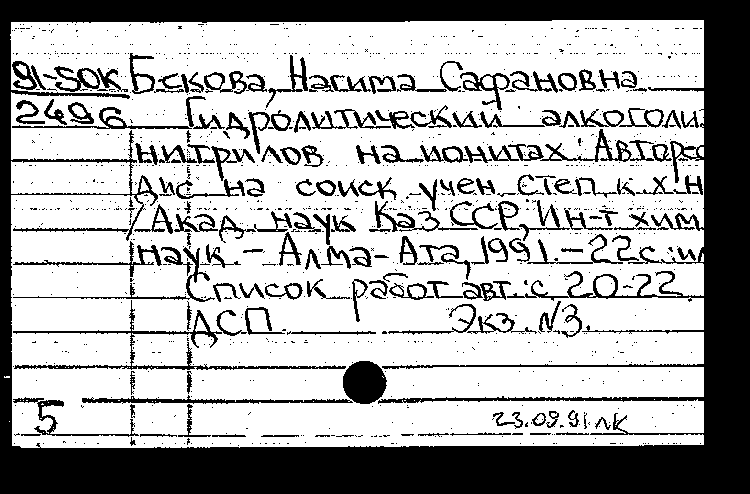 91-5ОК Бекова, Нагима Сафановна
2496 Гидролитический алкоголи
нитрилов на ионитах: Авторе
Дис на соиск учен степ к х н
/ Акад. наук Каз ССР, Ин-т хим.
наук. – Алма-Ата, 1991. – 22 с :ил
Список работ авт.: с. 20-22.
ДСП. Экз. N3.
5 23.09.91 лк